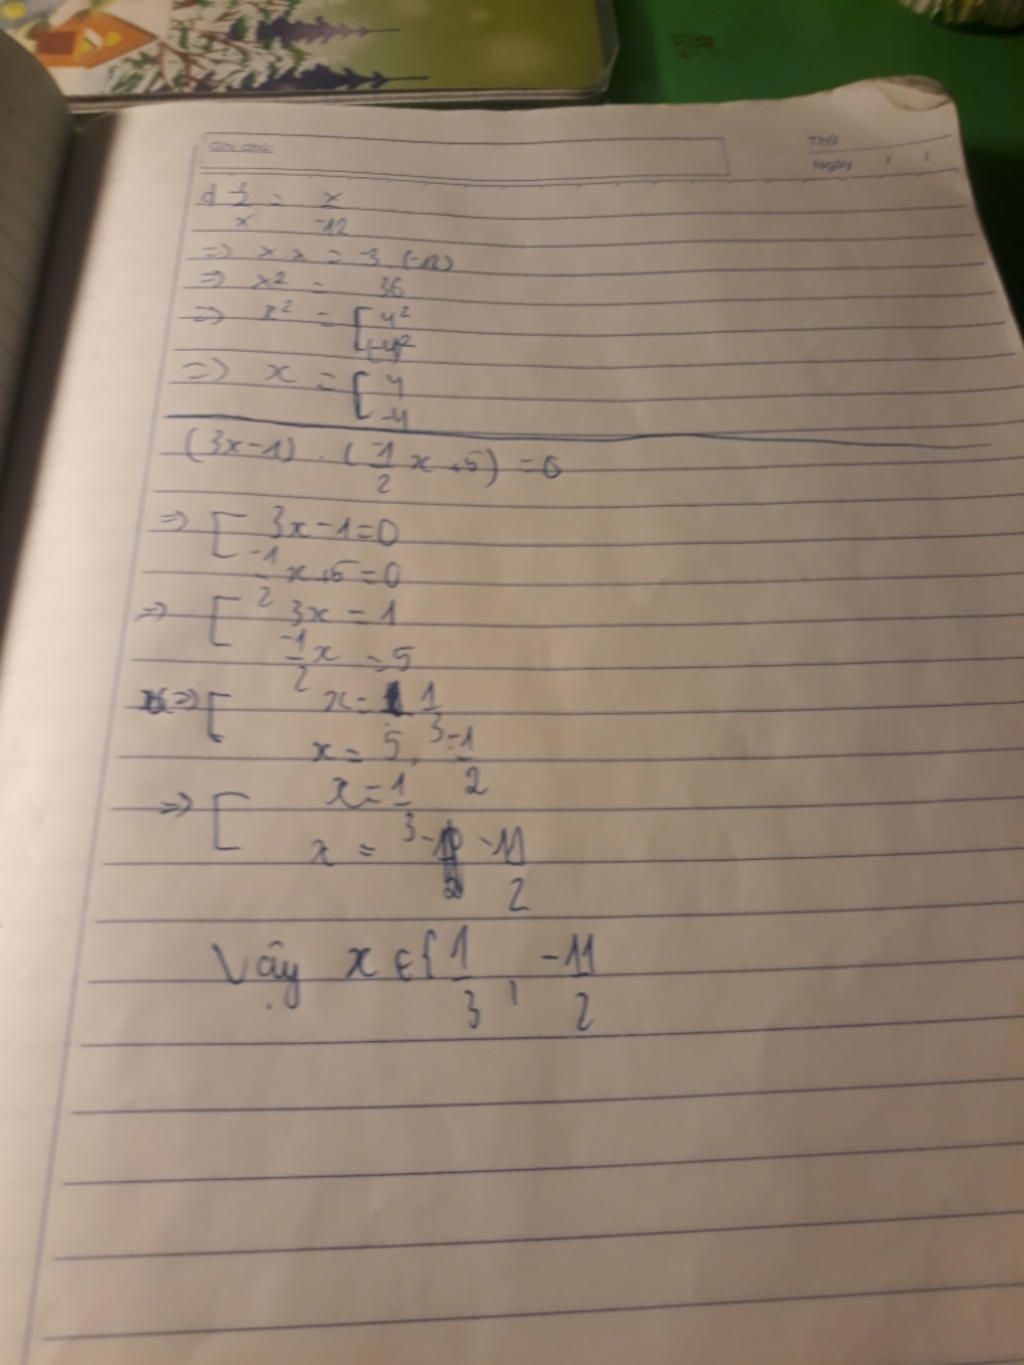 Thứ
Ngày / /
x
x -12
=> x x = -3 (-12)
=> x² = 36
=> x² = [ 4²
(-4)²
=> x = [ 4
-4
(3x-1) . (-1/2 x +5) = 0
=> [ 3x-1=0
-1/2 x+5=0
=> [ 3x = 1
-1/2 x = 5
=> [ x = 1/3
x = 5 . -1/2
=> [ x = 1/3
x = -11/2
Vậy x ∈ { 1/3 , -11/2